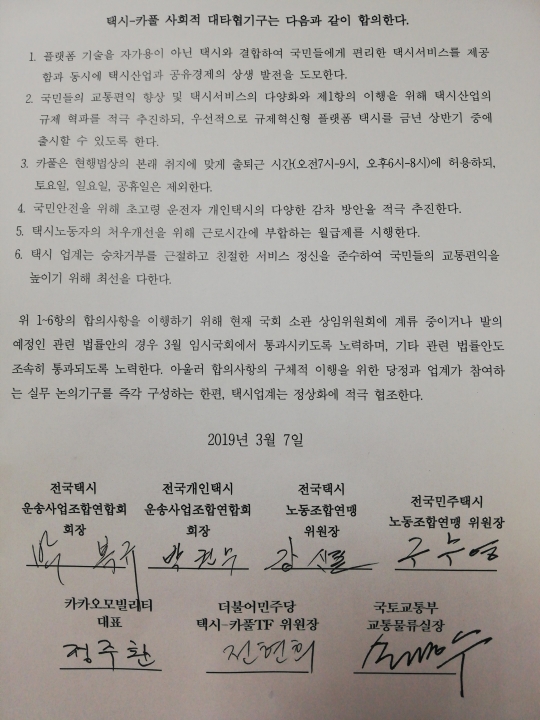 택시-카풀 사회적 대타협기구는 다음과 같이 합의한다.
1. 플랫폼 기술을 자가용이 아닌 택시와 결합하여 국민들에게 편리한 택시서비스를 제공
함과 동시에 택시산업과 공유경제의 상생 발전을 도모한다.
2. 국민들의 교통편익 향상 및 택시서비스의 다양화와 제1항의 이행을 위해 택시산업의
규제 혁파를 적극 추진하되, 우선적으로 규제혁신형 플랫폼 택시를 금년 상반기 중에
출시할 수 있도록 한다.
3. 카풀은 현행법상의 본래 취지에 맞게 출퇴근 시간(오전7시-9시, 오후6시-8시)에 허용하되,
토요일, 일요일, 공휴일은 제외한다.
4. 국민안전을 위해 초고령 운전자 개인택시의 다양한 감차 방안을 적극 추진한다.
5. 택시노동자의 처우개선을 위해 근로시간에 부합하는 월급제를 시행한다.
6. 택시 업계는 승차거부를 근절하고 친절한 서비스 정신을 준수하여 국민들의 교통편익을
높이기 위해 최선을 다한다.
위 1~6항의 합의사항을 이행하기 위해 현재 국회 소관 상임위원회에 계류 중이거나 발의
예정인 관련 법률안의 경우 3월 임시국회에서 통과시키도록 노력하며, 기타 관련 법률안도
조속히 통과되도록 노력한다. 아울러 합의사항의 구체적 이행을 위한 당정과 업계가 참여하
는 실무 논의기구를 즉각 구성하는 한편, 택시업계는 정상화에 적극 협조한다.
2019년 3월 7일
전국택시 전국개인택시 전국택시 전국민주택시
운송사업조합연합회 운송사업조합연합회 노동조합연맹 노동조합연맹 위원장
회장 회장 위원장
박 복규 박 권수 강 신표 구수영
카카오모빌리티 더불어민주당 국토교통부
대표 택시-카풀TF 위원장 교통물류실장
정주환 전현희